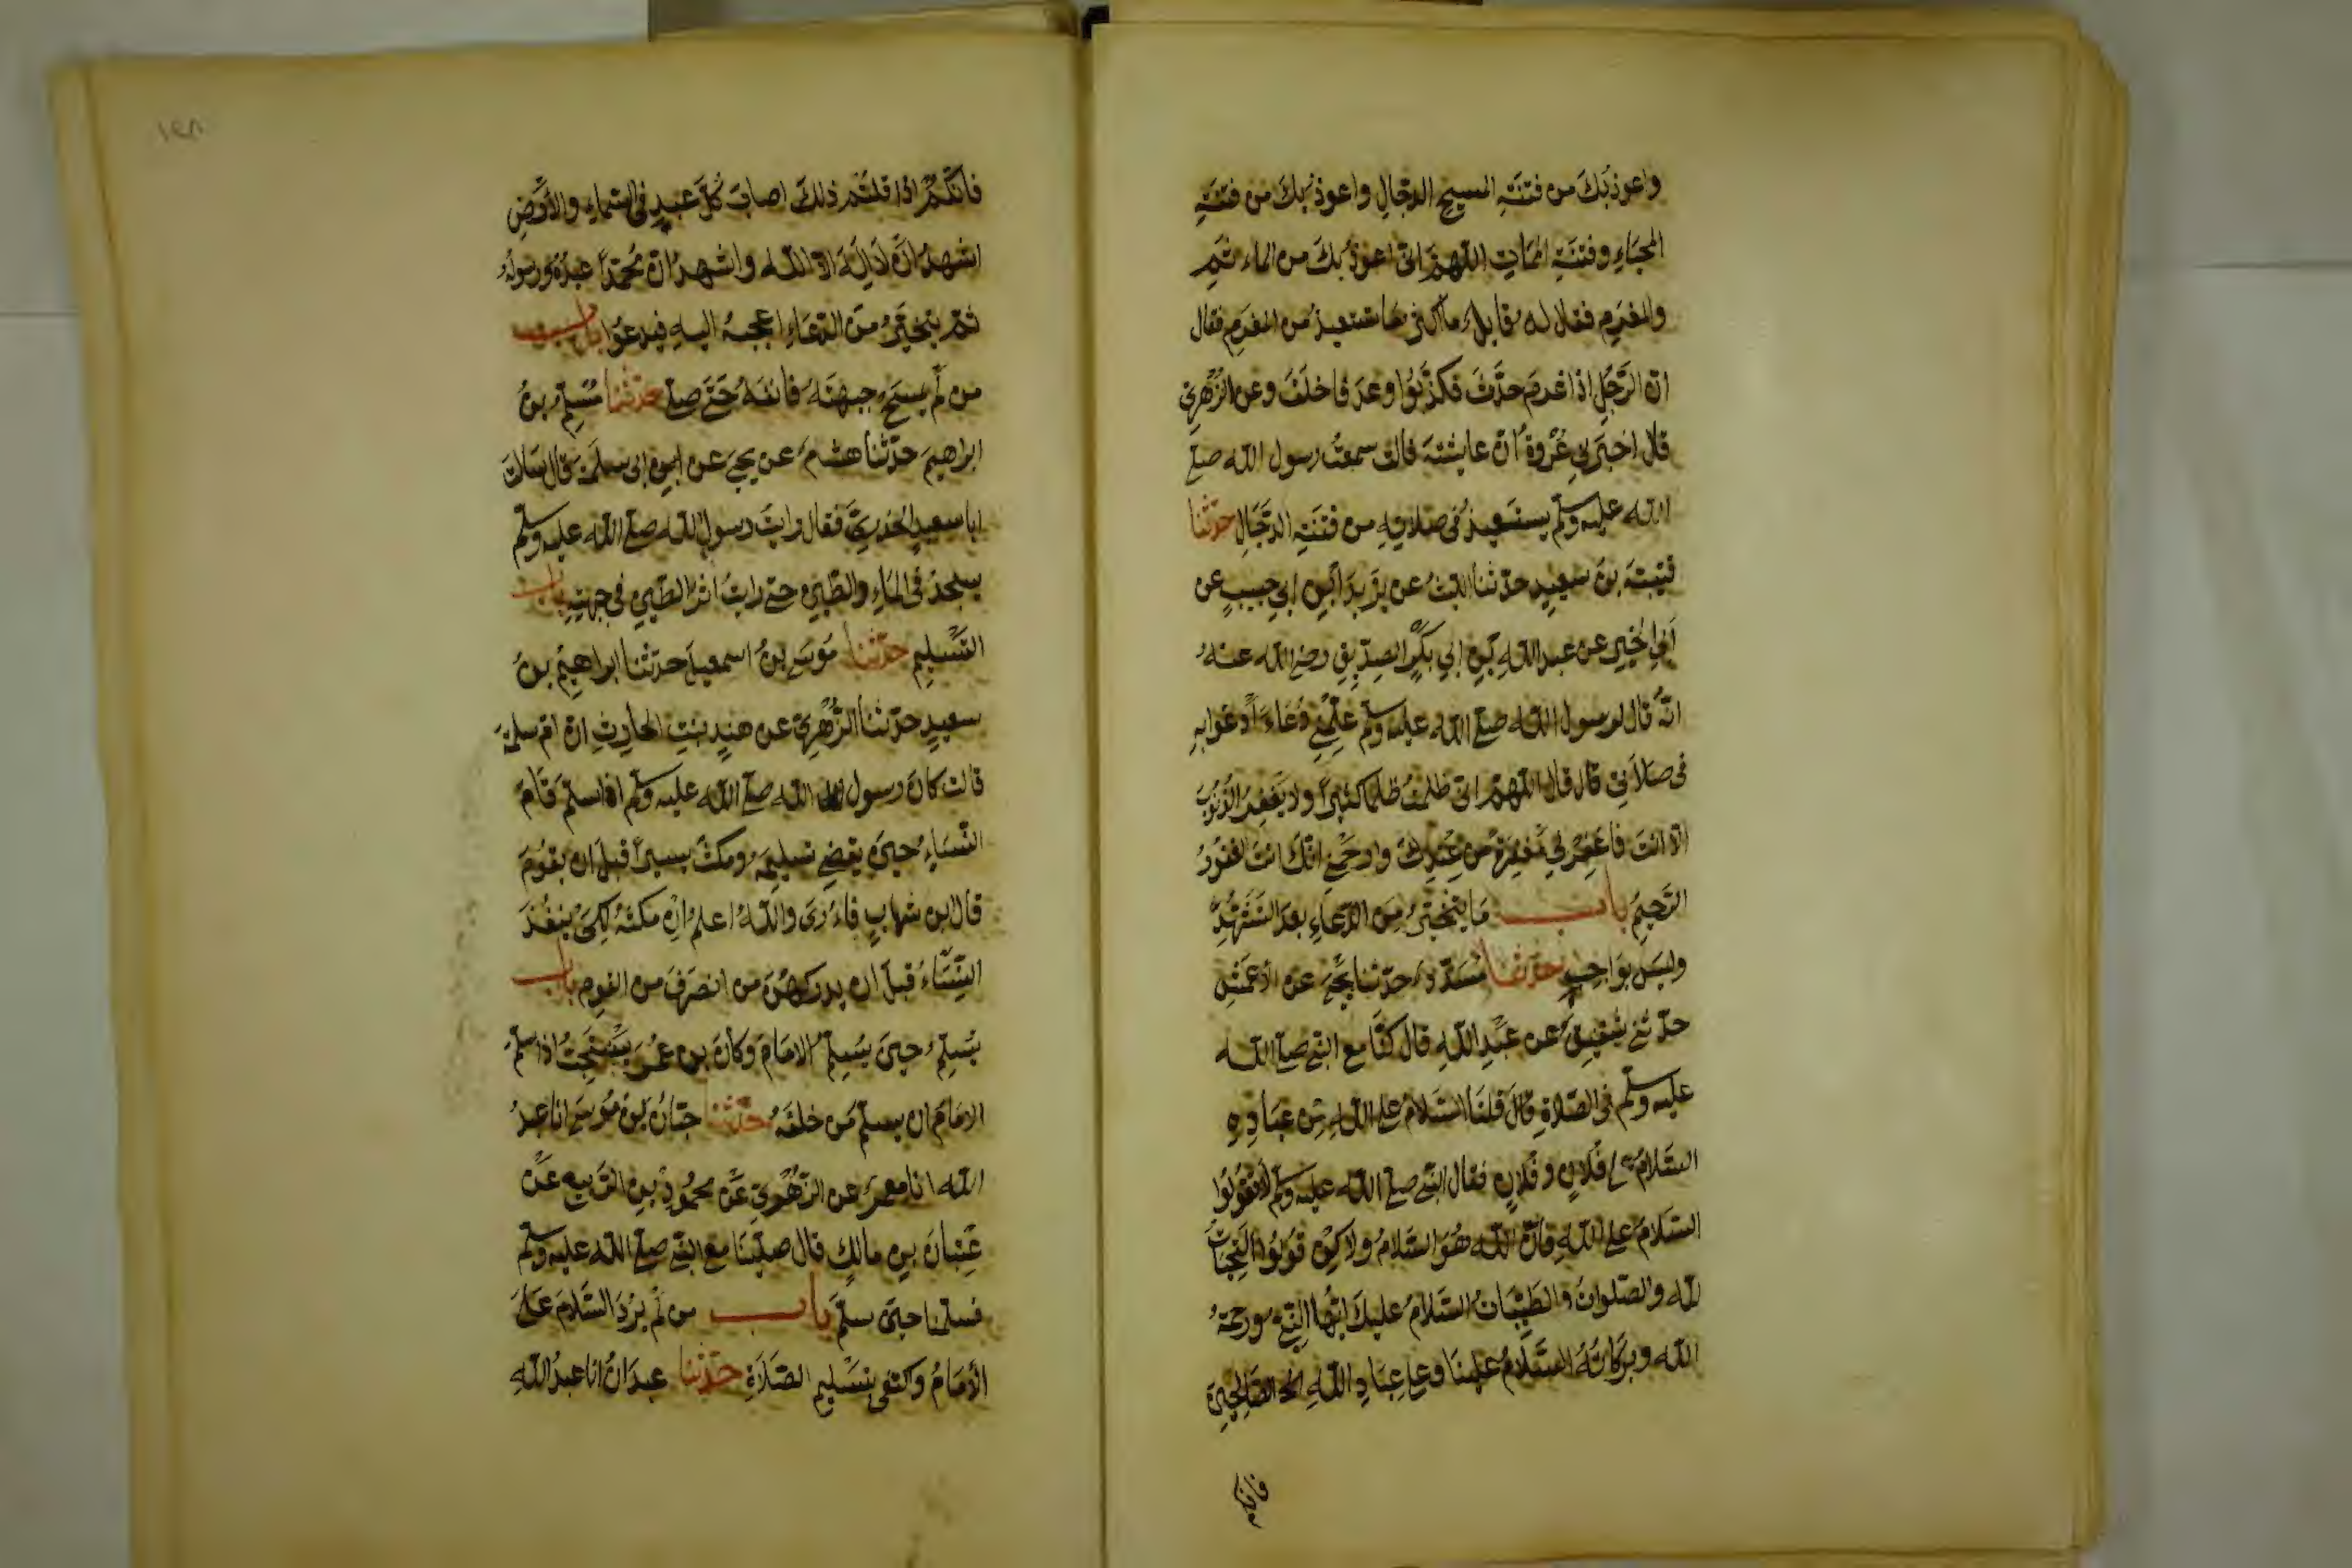 واعوذ بك من فتنة المسيح الدجال واعوذ بك من فتنة
المحياء وفتنة الممات اللهم انى اعوذ بك من الماء ثم
والمغرم فقال له قايل ما اكثر ما تستعيذ من المغرم فقال
ان الرجل اذا غرم حدث فكذب وا وعد فاخلف وعن الزهرى
قال اخبرنى عروة ان عايشة قالت سمعت رسول الله صلى
الله عليه وسلم يستعيذ فى صلاته من فتنة الدجال حدثنا
قتيبة بن سعيد حدثنا الليث عن يزيد ابن ابى حبيب عن
ابى الخير عن عبد الله بن ابى بكر الصديق رضى الله عنه
انه قال لرسول الله صلى الله عليه وسلم علمنى دعاء ادعوا به
فى صلاتى قال قال اللهم انى ظلمت ظلما كثيرا ولا يغفر الذنوب
الا انت فاغفر لى مغفرة من عندك وارحمنى انك انت الغفور
الرحيم باب ما يتخير من الدعاء بعد التشهد
وليس بواجب حدثنا مسدد حدثنا يحيى عن الاعمش
حدثنى شقيق عن عبد الله قال كنا مع النبى صلى الله
عليه وسلم فى الصلاة قال قلنا السلام على الله من عباده
السلام على فلان وفلان فقال النبى صلى الله عليه وسلم لا تقولوا
السلام على الله فان الله هو السلام ولاكن قولوا التحيات
لله والصلوات والطيبات السلام عليك ايها النبى ورحمة
الله وبركاته السلام علينا وعلى عباد الله الصالحين
فانكم
١٤٨
فانكم اذا قلتم ذلك اصاب كل عبد فى السماء والأرض
اشهد ان لا اله الا الله واشهد ان محمدا عبده ورسوله
ثم يتخير من الدعاء اعجبه اليه فيدعوا باب
من لم يمسح جبهته وانفه حتى صلى حدثنا مسلم بن
ابراهيم حدثنا هشام عن يحيى عن ابى سلمة قال سالت
ابا سعيد الخدرى فقال رايت رسول الله صلى الله عليه وسلم
يسجد فى الماء والطين حتى رايت اثر الطين فى جبهته باب
التسليم حدثنا موسى بن اسمعيل حدثنا ابراهيم بن
سعيد حدثنا الزهرى عن هند بنت الحارث ان ام سلمة
قالت كان رسول الله صلى الله عليه وسلم اذا سلم قام
النساء حين يقضى تسليمه ومكث يسيرا قبل ان يقوم
قال ابن شهاب فاءرى والله اعلم ان مكثه لكى ينفذ
النساء قبل ان يدركهن من انصرف من القوم باب
يسلم حين يسلم الامام وكان بن عمر يستحب اذا سلم
الامام ان يسلم من خلفه حدثنا حبان بن موسى انا عبد
الله انا معمر عن الزهرى عن محمود بن الربيع عن
عتبان بن مالك قال صلينا مع النبى صلى الله عليه وسلم
فسلمنا حين سلم باب من لم يرد السلام على
الأمام واكتفى بتسليم الصلاة حدثنا عبدان انا عبد الله